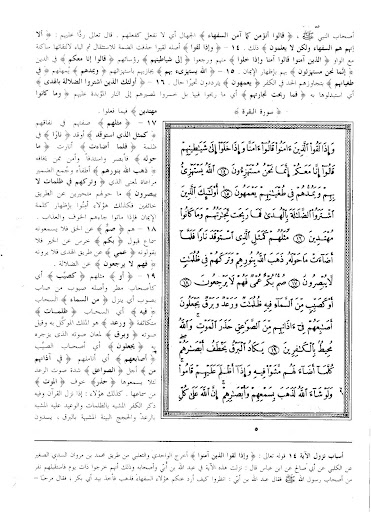 أصحاب النبي ﷺ ، ﴿ قالوا أنؤمن كما آمن السفهاء ﴾ الجهال أي لا نفعل كفعلهم . قال تعالى رداً عليهم : ﴿ ألا
إنهم هم السفهاء ولكن لا يعلمون ﴾ ذلك . ١٤ - ﴿ وإذا لقوا ﴾ أصله لقيوا حذفت الضمة للاستثقال ثم الياء لالتقائها ساكنة
مع الواو ﴿ الذين آمنوا قالوا آمنا وإذا خلوا ﴾ منهم ورجعوا ﴿ إلى شياطينهم ﴾ رؤسائهم ﴿ قالوا إنا معكم ﴾ في الدين
﴿ إنما نحن مستهزئون ﴾ بهم بإظهار الإيمان . ١٥ - ﴿ الله يستهزىء بهم ﴾ يجازيهم باستهزائهم ﴿ ويمدهم ﴾ يمهلهم ﴿ في
طغيانهم ﴾ بتجاوزهم الحد في الكفر ﴿ يعمهون ﴾ يترددون تحيراً حال . ١٦ - ﴿ أولئك الذين اشتروا الضلالة بالهدى ﴾ أي
استبدلوها به ﴿ فما ربحت تجارتهم ﴾ أي ما ربحوا فيها بل خسروا لمصيرهم إلى النار المؤبدة عليهم ﴿ وما كانوا
﴿ سورة البقرة ﴾
وَإِذَا لَقُوا الَّذِينَ ءَامَنُوا قَالُوٓا ءَامَنَّا وَإِذَا خَلَوْا إِلَىٰ شَيَٰطِينِهِمْ
قَالُوٓا إِنَّا مَعَكُمْ إِنَّمَا نَحْنُ مُسْتَهْزِءُونَ ١٤ اللَّهُ يَسْتَهْزِئُ
بِهِمْ وَيَمُدُّهُمْ فِي طُغْيَٰنِهِمْ يَعْمَهُونَ ١٥ أُو۟لَٰٓئِكَ الَّذِينَ
اشْتَرَوُا الضَّلَٰلَةَ بِالْهُدَىٰ فَمَا رَبِحَت تِّجَٰرَتُهُمْ وَمَا كَانُوا
مُهْتَدِينَ ١٦ مَثَلُهُمْ كَمَثَلِ الَّذِي اسْتَوْقَدَ نَارًا فَلَمَّآ
أَضَآءَتْ مَا حَوْلَهُ ذَهَبَ اللَّهُ بِنُورِهِمْ وَتَرَكَهُمْ فِي ظُلُمَٰتٍ
لَّا يُبْصِرُونَ ١٧ صُمٌّ بُكْمٌ عُمْيٌ فَهُمْ لَا يَرْجِعُونَ ١٨
أَوْ كَصَيِّبٍ مِّنَ السَّمَآءِ فِيهِ ظُلُمَٰتٌ وَرَعْدٌ وَبَرْقٌ يَجْعَلُونَ
أَصَٰبِعَهُمْ فِيٓ ءَاذَانِهِم مِّنَ الصَّوَٰعِقِ حَذَرَ الْمَوْتِ وَاللَّهُ
مُحِيطٌ بِالْكَٰفِرِينَ ١٩ يَكَادُ الْبَرْقُ يَخْطَفُ أَبْصَٰرَهُمْ
كُلَّمَآ أَضَآءَ لَهُم مَّشَوْا فِيهِ وَإِذَآ أَظْلَمَ عَلَيْهِمْ قَامُوا
وَلَوْ شَآءَ اللَّهُ لَذَهَبَ بِسَمْعِهِمْ وَأَبْصَٰرِهِمْ إِنَّ اللَّهَ عَلَىٰ كُلِّ
٥
مهتدين ﴾ فيما فعلوا .
١٧ - ﴿ مثلهم ﴾ صفتهم في نفاقهم
﴿ كمثل الذي استوقد ﴾ أوقد ﴿ ناراً ﴾ في
ظلمة ﴿ فلما أضاءت ﴾ أنارت ﴿ ما
حوله ﴾ فأبصر واستدفأ وأمن ممن يخافه
﴿ ذهب الله بنورهم ﴾ أطفأه وجُمع الضمير
مراعاة لمعنى الذي ﴿ وتركهم في ظلمات لا
يبصرون ﴾ ما حولهم متحيرين عن الطريق
خائفين فكذلك هؤلاء آمنوا بإظهار كلمة
الإيمان فإذا ماتوا جاءهم الخوف والعذاب .
١٨ - هم ﴿ صم ﴾ عن الحق فلا يسمعونه
سماع قبول ﴿ بكم ﴾ خرس عن الخير فلا
يقولونه ﴿ عمي ﴾ عن طريق الهدى فلا يرونه
﴿ فهم لا يرجعون ﴾ عن الضلالة .
١٩ - ﴿ أو ﴾ مثلهم ﴿ كصيّب ﴾ أي
كأصحاب مطر وأصله صيوب من صاب
يصوب أي ينزل ﴿ من السماء ﴾ السحاب
﴿ فيه ﴾ أي السحاب ﴿ ظلمات ﴾
متكاثفة ﴿ ورعد ﴾ هو الملك الموكّل به وقيل
صوته ﴿ وبرق ﴾ لمعان صوته الذي يزجره
به ﴿ يجعلون ﴾ أي أصحاب الصيّب
﴿ أصابعهم ﴾ أي أناملهم ﴿ في آذانهم
من ﴾ أجل ﴿ الصواعق ﴾ شدة صوت الرعد
لئلا يسمعوها ﴿ حذر ﴾ خوف ﴿ الموت ﴾
من سماعها . كذلك هؤلاء : إذا نزل القرآن وفيه
ذكر الكفر المشبه بالظلمات والوعيد عليه المشبه
بالرعد والحجج البينة المشبهة بالبرق ، يسدون
أسباب نزول الآية ١٤ قوله تعالى : ﴿ وإذا لقوا الذين آمنوا ﴾ أخرج الواحدي والثعلبي من طريق محمد بن مروان السدي الصغير
عن الكلبي عن أبي صالح عن ابن عباس قال : نزلت هذه الآية في عبد الله بن أبيّ وأصحابه وذلك أنهم خرجوا ذات يوم فاستقبلهم نفر
من أصحاب رسول الله ﷺ فقال عبد الله بن أبيّ : انظروا كيف أرد عنكم هؤلاء السفهاء فذهب فأخذ بيد أبي بكر ، فقال مرحباً -